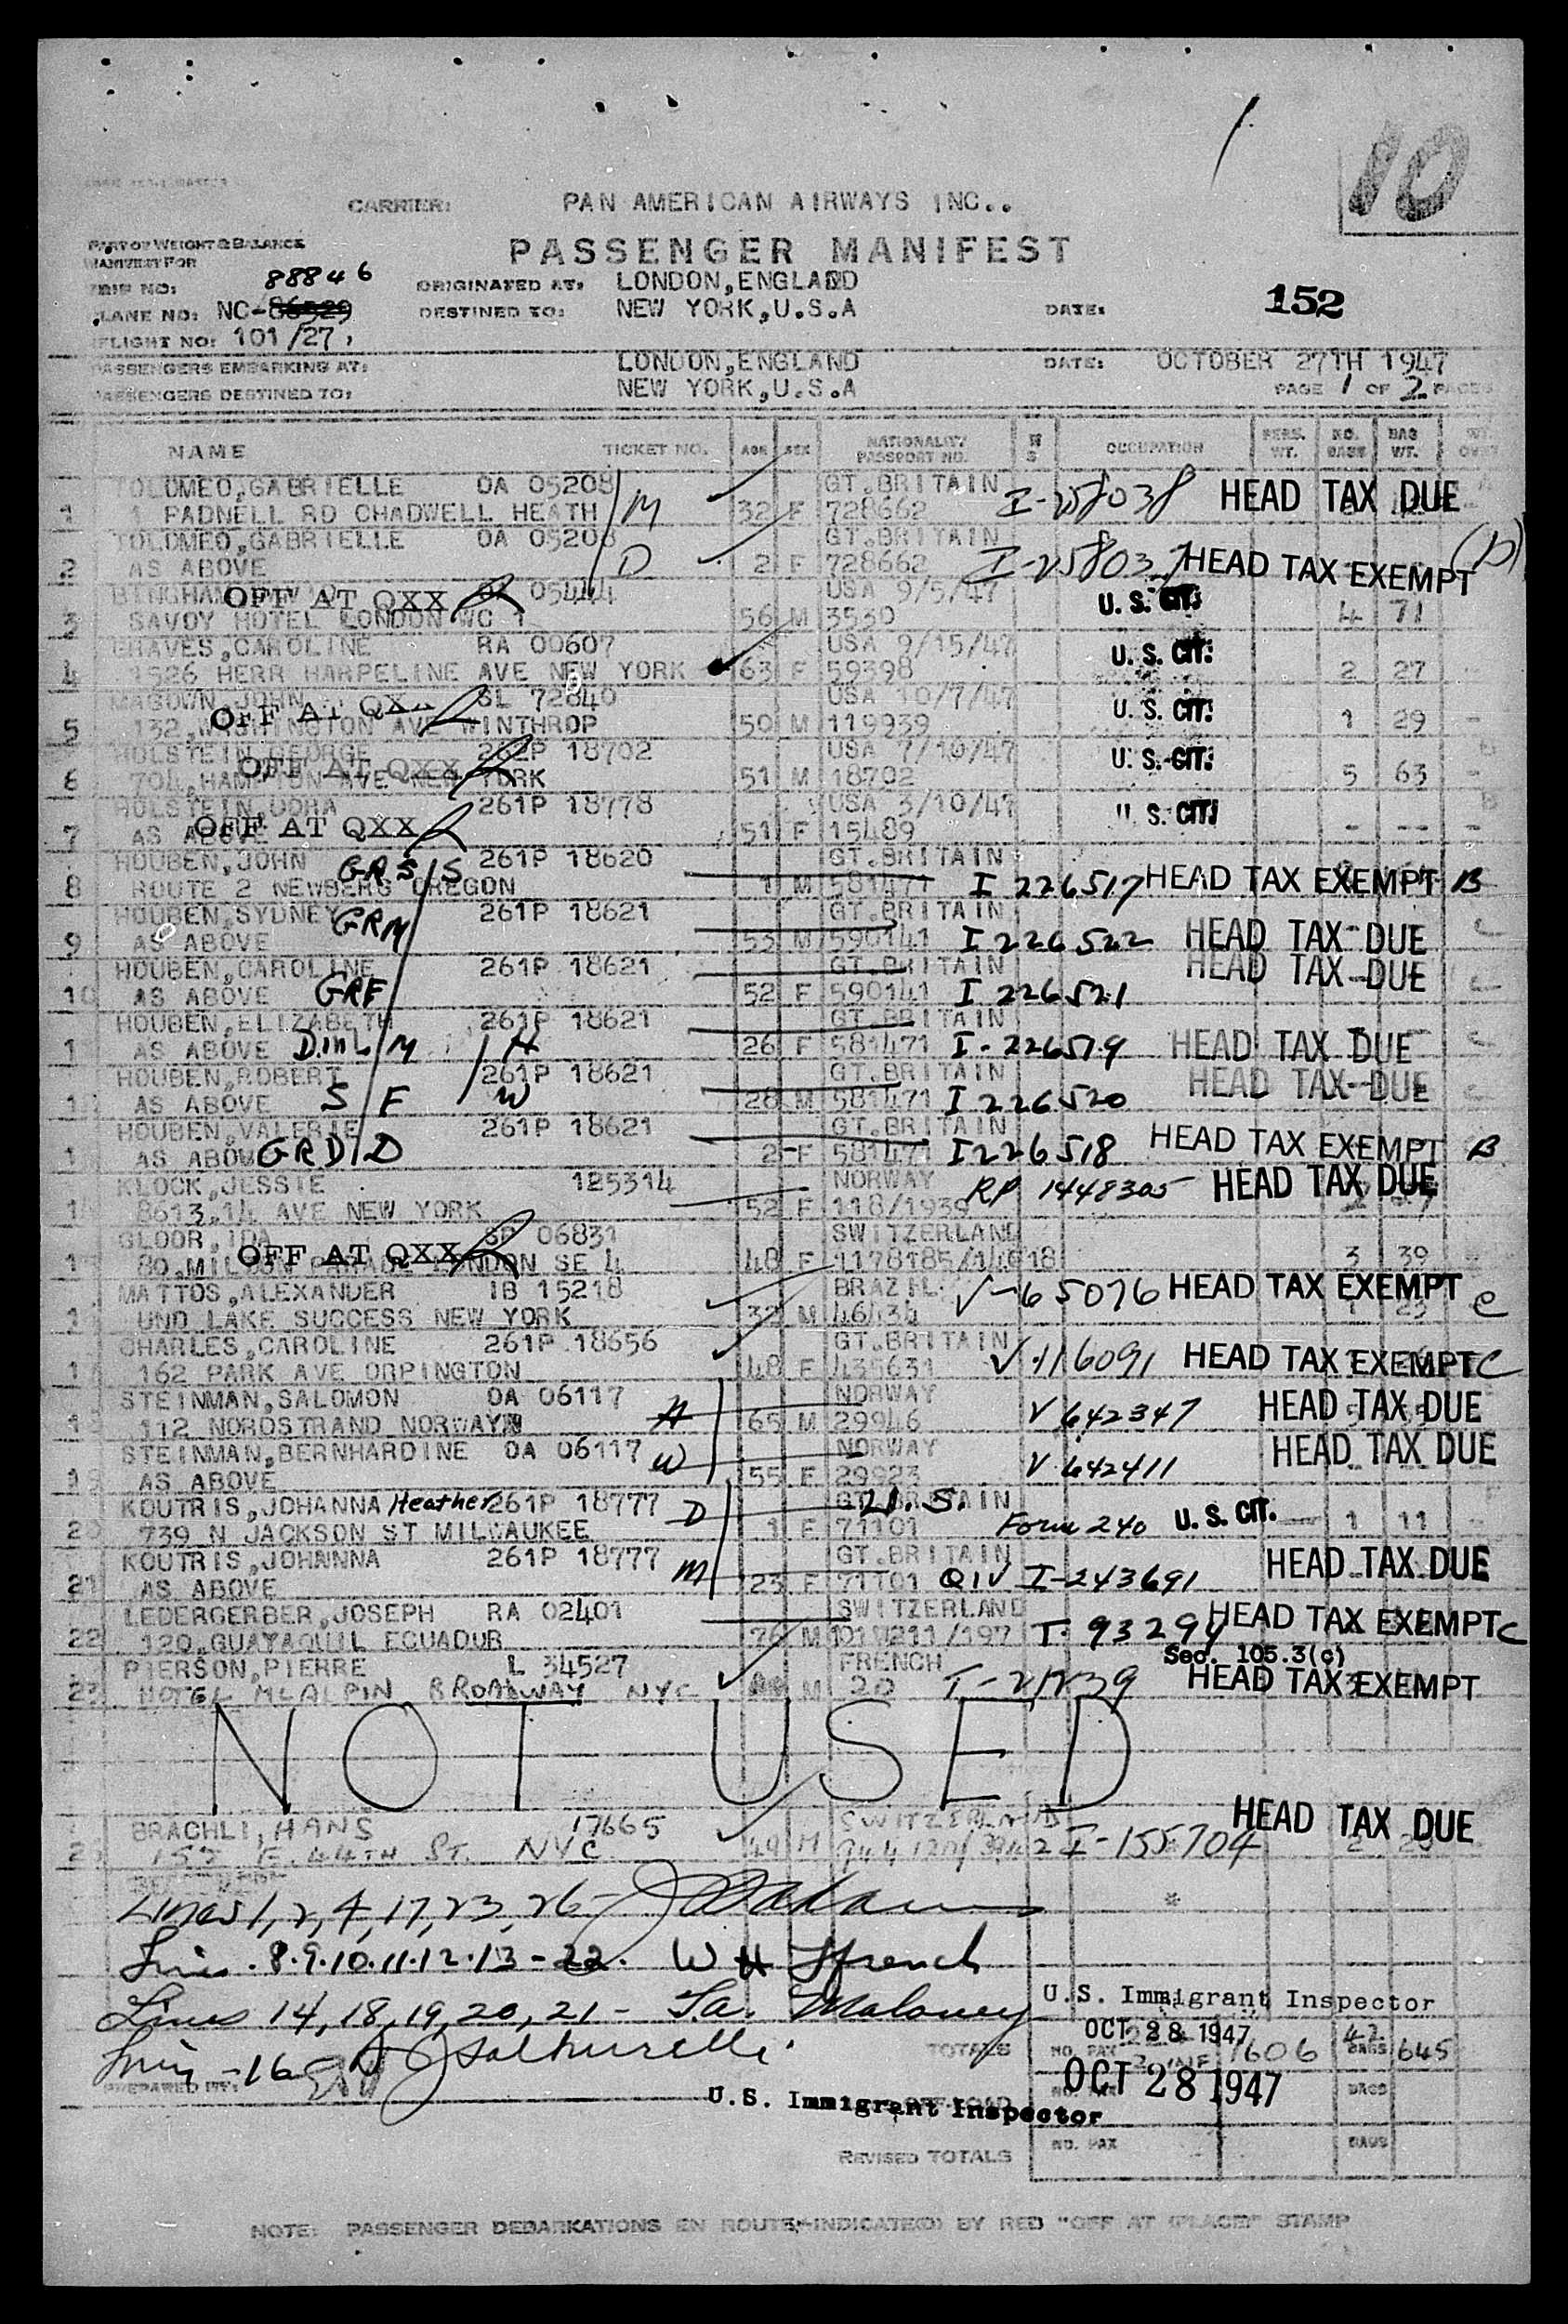 10
CARRIER: PAN AMERICAN AIRWAYS INC..
PART OF WEIGHT & BALANCE
PASSENGER MANIFEST
MANIFEST FOR
88846
TRIP NO: ORIGINATED AT: LONDON,ENGLAND
PLANE NO: NC-86529 DESTINED TO: NEW YORK,U.S.A DATE: 152
FLIGHT NO: 101/27
PASSENGERS EMBARKING AT: LONDON,ENGLAND DATE: OCTOBER 27TH 1947
PASSENGERS DESTINED TO: NEW YORK,U.S.A PAGE 1 OF 2 PAGES
NAME TICKET NO. AGE SEX NATIONALITY PASSPORT NO. OCCUPATION PERS. WT. NO. BAGS BAG WT.
TOLOMEO,GABRIELLE OA 05208 M GT.BRITAIN I-258038 HEAD TAX DUE
1 1 PADNELL RD CHADWELL HEATH 32 F 728662
TOLOMEO,GABRIELLE OA 05208 D GT.BRITAIN I-258037 HEAD TAX EXEMPT (D)
2 AS ABOVE 2 F 728662
OFF AT QXX 05444 USA 9/5/47 U. S. CIT:
3 SAVOY HOTEL LONDON WC 1 56 M 3530 4 71
GRAVES,CAROLINE RA 00607 USA 9/15/47 U. S. CIT:
4 1526 HERR HARPELINE AVE NEW YORK 63 F 59398 2 27
MAGOWN,JOHN OFF AT QXX SL 72840 USA 10/7/47 U. S. CIT:
5 132,WASHINGTON AVE WINTHROP 50 M 119939 1 29 -
HOLSTEIN,GEORGE OFF AT QXX 261P 18702 USA 7/10/47 U. S. CIT:
6 704,HAMPTON AVE NEW YORK 51 M 18702 5 63 -
OFF AT QXX 261P 18778 USA 3/10/47 U. S. CIT:
7 AS ABOVE 51 F 15489 - -- -
HOUBEN,JOHN GRS/S 261P 18620 GT.BRITAIN I 226517 HEAD TAX EXEMPT B
8 ROUTE 2 NEWBERG OREGON 1 M 581471
HOUBEN,SYDNEY GRM 261P 18621 GT.BRITAIN
9 AS ABOVE 53 M 590141 I 226522 HEAD TAX DUE
HOUBEN,CAROLINE 261P 18621 GT.BRITAIN HEAD TAX DUE
10 AS ABOVE GRF 52 F 590141 I 226521
HOUBEN,ELIZABETH 261P 18621 GT.BRITAIN
1 AS ABOVE D.inL/M H 26 F 581471 I-226519 HEAD TAX DUE
HOUBEN,ROBERT 261P 18621 GT.BRITAIN HEAD TAX DUE
1 AS ABOVE S/F W 28 M 581471 I 226520
HOUBEN,VALERIE 261P 18621 GT.BRITAIN HEAD TAX EXEMPT B
1 AS ABOVE GRD/D 2 F 581471 I 226518
KLOCK,JESSIE 125314 NORWAY RP 1448305 HEAD TAX DUE
14 8613,14 AVE NEW YORK 52 F 118/1939
GLOOR,IDA OFF AT QXX 06831 SWITZERLAND
1 LONDON SE 4 48 F 1178185/14618 3 39
MATTOS,ALEXANDER IB 15218 BRAZIL V-65076 HEAD TAX EXEMPT C
1 UNO LAKE SUCCESS NEW YORK 32 M 46434
CHARLES,CAROLINE 261P 18656 GT.BRITAIN V-116091 HEAD TAX EXEMPT C
1 162 PARK AVE ORPINGTON 48 F 435631
STEINMAN,SALOMON OA 06117 H NORWAY V 642347 HEAD TAX DUE
1 112 NORDSTRAND NORWAY 65 M 29946
STEINMAN,BERNHARDINE OA 06117 W NORWAY V-642411 HEAD TAX DUE
19 AS ABOVE 55 F 29923
KOUTRIS,JOHANNA Heather 261P 18777 D GT.BRITAIN U.S.
20 739 N JACKSON ST MILWAUKEE 1 F 71101 Form 240 U. S. CIT. 1 11 -
KOUTRIS,JOHNNNA 261P 18777 M GT.BRITAIN HEAD TAX DUE
21 AS ABOVE 23 F 71101 QIV I-243691
LEDERGERBER,JOSEPH RA 02401 SWITZERLAND HEAD TAX EXEMPT C
22 120,GUAYAQUIL ECUADOR 76 M T-93294
PIERSON,PIERRE L 34527 FRENCH Sec. 105.3(c)
23 HOTEL MCALPIN BROADWAY NYC M 20 HEAD TAX EXEMPT
NOT USED
BRACHLI, HANS 17665 SWITZERLAND HEAD TAX DUE
E. 44TH ST. NYC 49 M I-155704
Lines 1, 2, 4, 17, 23, 26-
Lines .8.9.10.11.12.13-22. W H Ffrench
Lines 14, 18, 19, 20, 21 - T.a. Maloney
U.S. Immigrant Inspector
OCT 28 1947
TOTALS NO. PAX 1606 42 BAGS 645
Line -16
PREPARED BY:
OCT 28 1947 BAGS
U.S. Immigrant Inspector
REVISED TOTALS NO. PAX BAGS
NOTE: PASSENGER DEBARKATIONS EN ROUTE INDICATE(D) BY RED "OFF AT (PLACE)" STAMP